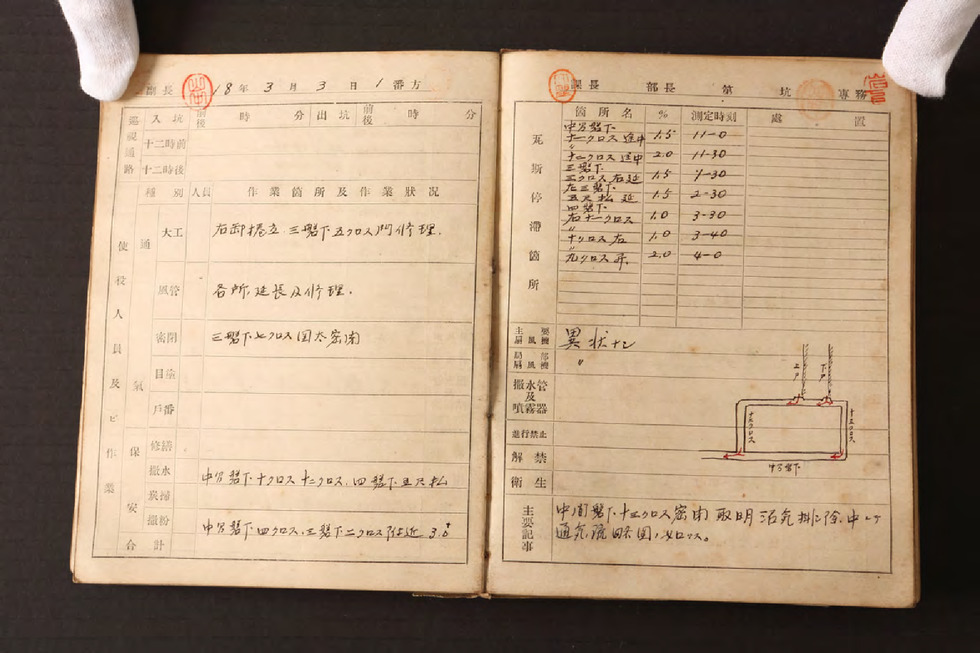 副長 18年 3月 3日 1番方
巡視通路 入坑 前後 時 分 出坑 前後 時 分
十二時前
十二時後
種別 人員 作業箇所及作業狀况
使役人員及ビ作業
通氣
大工 右卸捲立、三盤下五クロス門修理.
風管 各所延長及修理.
密閉 三盤下七クロス
目塗
戶番
保安
修繕
撒水 中 盤下十クロス十二クロス、四盤下五尺払
炭掃
撒粉 中 盤下四クロス、三盤下二クロス附近 3.0
合計
課長 部長 第 坑 專務
瓦斯停滯箇所
箇所名 % 測定時刻 處置
中 盤下
十二クロス途中 1.5 11-0
〃
十二クロス途中 2.0 11-30
三盤下
三クロス右延 1.5 1-30
左三盤下
五尺払延 1.5 2-30
四盤下
右十一クロス 1.0 3-30
〃
十クロス左 1.0 3-40
九クロス昇 2.0 4-0
主要扇風機 異狀ナシ
局部扇風機 〃
撒水管及噴霧器
進行禁止
解禁
衛生
上戸
下戸
十三クロス
中 盤下
主要記事
盤下十三クロス密閉取明 排除中ニテ
通気 略図ノ如クス。